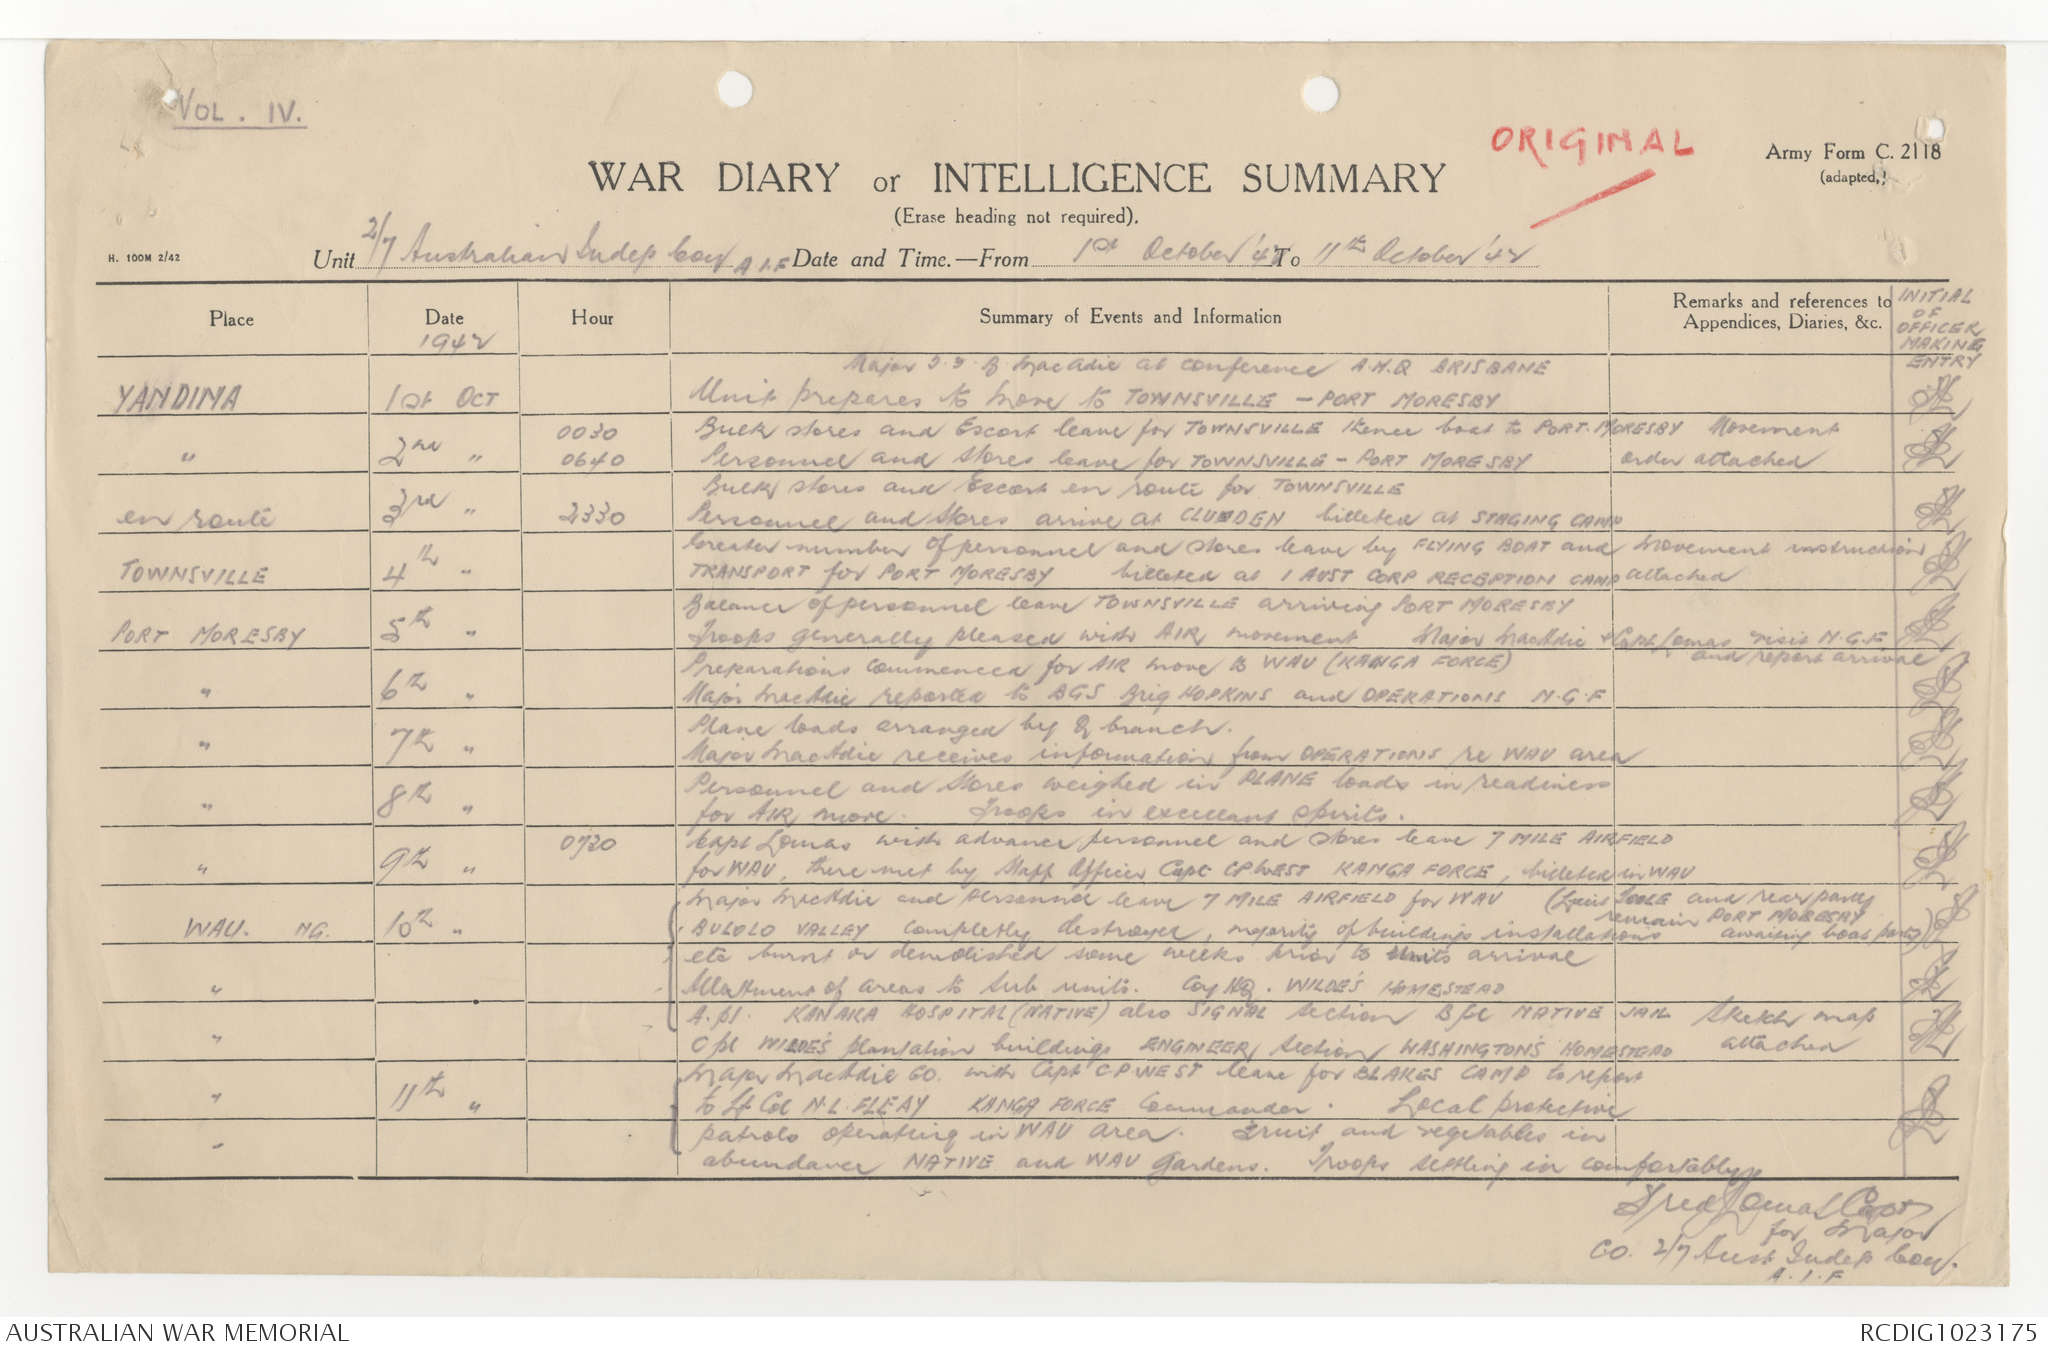 VOL. IV.
ORIGINAL
Army Form C. 2118
(adapted,)
WAR DIARY or INTELLIGENCE SUMMARY
(Erase heading not required).
H. 100M 2/42
Unit 2/7 Australian Indep Coy A.I.F Date and Time.—From 1st October '42 To 11th October '42
Place Date 1942 Hour Summary of Events and Information Remarks and references to Appendices, Diaries, &c. INITIAL OF OFFICER MAKING ENTRY
Major MacAdie at conference A.H.Q BRISBANE
YANDINA 1st OCT Unit prepares to move to TOWNSVILLE - PORT MORESBY
0030 Bulk stores and Escort leave for TOWNSVILLE thence boat to PORT. MORESBY Movement
" 2nd " 0640 Personnel and stores leave for TOWNSVILLE - PORT MORESBY order attached
Bulk stores and Escort en route for TOWNSVILLE
en route 3rd " 2330 Personnel and stores arrive at CLUDEN billeted at STAGING CAMP
Greater number of personnel and stores leave by FLYING BOAT and Movement instruction
TOWNSVILLE 4th " TRANSPORT for PORT MORESBY billeted at 1 AUST CORP RECEPTION CAMP attached
Balance of personnel leave TOWNSVILLE arriving PORT MORESBY
PORT MORESBY 5th " Troops generally pleased with AIR movement Major MacAdie + Capt Lomas visit N.G.F
and report arrival
Preparations commenced for AIR move to WAU (KANGA FORCE)
" 6th " Major MacAdie reported to BGS Brig HOPKINS and OPERATIONS N.G.F
Plane loads arranged by Q branch.
" 7th " Major MacAdie receives information from OPERATIONS re WAU area
Personnel and stores weighed in PLANE loads in readiness
" 8th " for AIR move. Troops in excellent spirits.
0730 Capt Lomas with advance personnel and stores leave 7 MILE AIRFIELD
" 9th " for WAU, there met by Staff Officer Capt CP WEST KANGA FORCE, billeted in WAU
Major MacAdie and personnel leave 7 MILE AIRFIELD for WAU (Lieut and rear party
remain PORT MORESBY
WAU. NG. 10th " BULOLO VALLEY completly destroyed, majority of buildings installations awaiting boat party)
etc burnt or demolished some weeks prior to units arrival
" Allotment of areas to Sub units. Coy HQ. WILDE'S HOMESTEAD
A. pl. KANAKA HOSPITAL (NATIVE) also SIGNAL section B pl NATIVE JAIL Sketch map
" C pl WILDE'S plantation buildings ENGINEER section WASHINGTON'S HOMESTEAD attached
Major MacAdie CO. with Capt C P WEST leave for BLAKES CAMP to report
" 11th " to Lt Col N.L. FLEAY KANGA FORCE Commander. Local protective
" patrols operating in WAU area. Fruit and vegetables in
abundance NATIVE and WAU Gardens. Troops settling in comfortably
Fred Lomas Capt
for Major
CO. 2/7 Aust Indep Coy.
A.I.F
AUSTRALIAN WAR MEMORIAL
RCDIG1023175